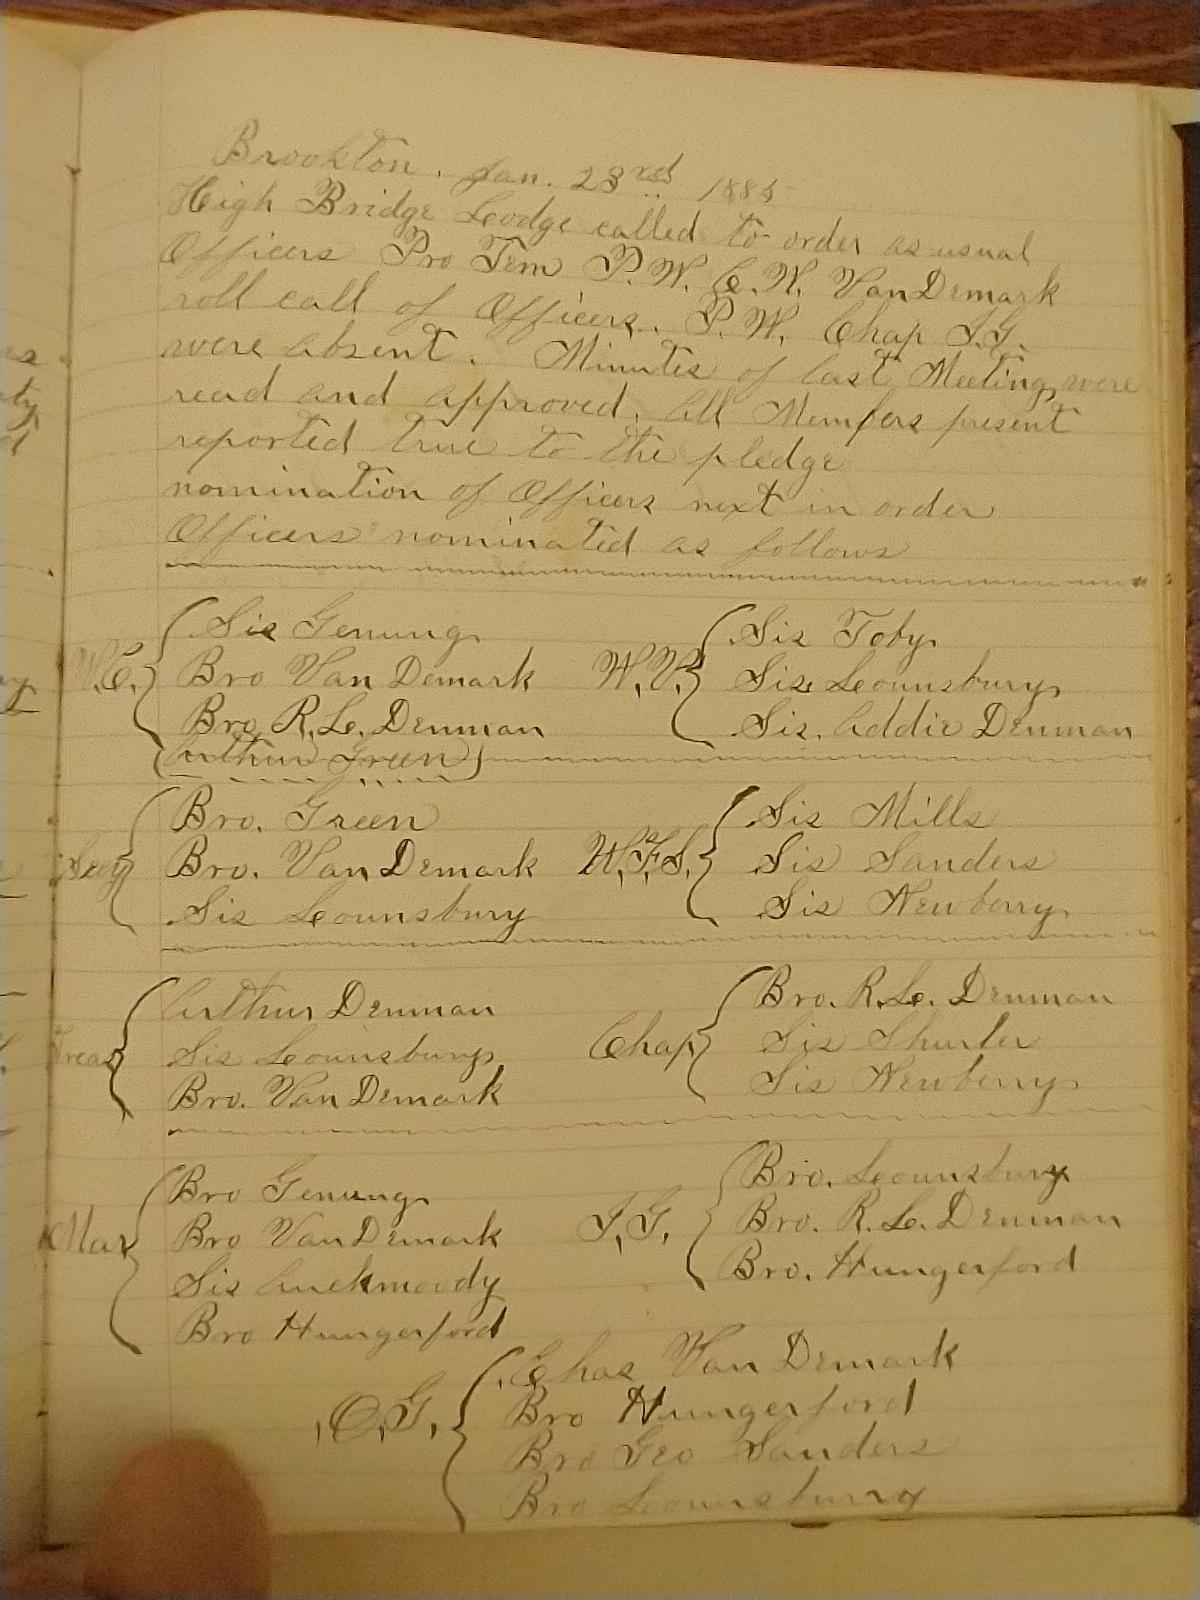 Brookton. Jan. 23rd 1885
High Bridge Lodge called to order as usual
Officers Pro Tem P.W. C.W. VanDemark
roll call of Officers. P.W. Chap I.G.
were absent. Minutes of last Meeting were
read and approved. All Members present
reported true to the pledge
nomination of Officers next in order
Officers nominated as follows
W.C. Sis Genung
Bro Van Demark
Bro R. L. Denman
(Arthur Green)
W.V. Sis Toby
Sis Lounsbury
Sis. Addie Denman
Secy Bro. Green
Bro. Van Demark
Sis Lounsbury
W.F.S. Sis Mills
Sis Sanders
Sis Newberry
Treas Arthur Denman
Sis Lounsbury
Bro. VanDemark
Chap Bro. R. L. Denman
Sis Shurter
Sis Newberry
Mar Bro Genung
Bro VanDemark
Sis
Bro Hungerford
I.G. Bro. Lounsbury
Bro. R. L. Denman
Bro. Hungerford
O.G. Chas Van Demark
Bro Hungerford
Bro Geo Sanders
Bro Lounsbury